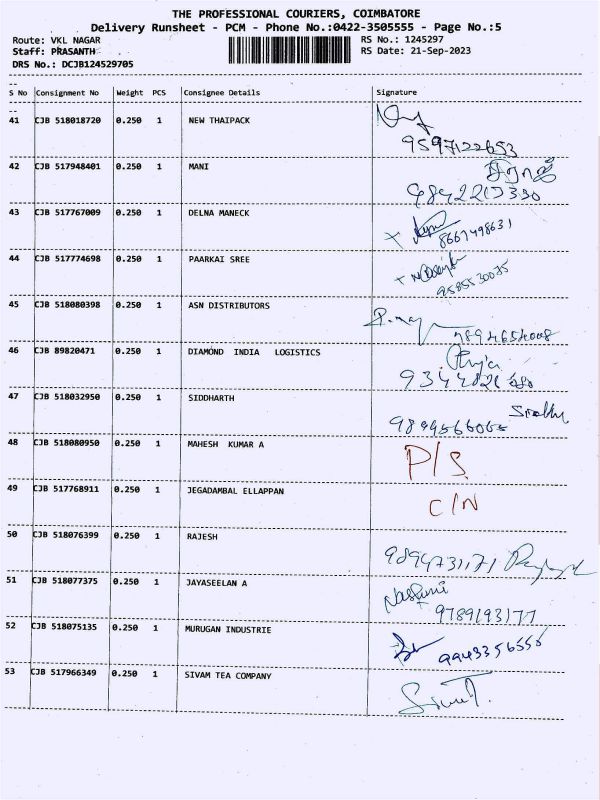 THE PROFESSIONAL COURIERS, COIMBATORE
Delivery Runsheet - PCM - Phone No.:0422-3505555 - Page No.:5
Route: VKL NAGAR RS No.: 1245297
Staff: PRASANTH RS Date: 21-Sep-2023
DRS No.: DCJB124529705
S No Consignment No Weight PCS Consignee Details Signature
41 CJB 518018720 0.250 1 NEW THAIPACK
9597122653
42 CJB 517948401 0.250 1 MANI
43 CJB 517767009 0.250 1 DELNA MANECK
8667498631
44 CJB 517774698 0.250 1 PAARKAI SREE
9585530035
45 CJB 518080398 0.250 1 ASN DISTRIBUTORS
7894654008
46 CJB 89820471 0.250 1 DIAMOND INDIA LOGISTICS
47 CJB 518032950 0.250 1 SIDDHARTH
48 CJB 518080950 0.250 1 MAHESH KUMAR A P/S
49 CJB 517768911 0.250 1 JEGADAMBAL ELLAPPAN C/N
50 CJB 518076399 0.250 1 RAJESH
9894731171
51 CJB 518077375 0.250 1 JAYASEELAN A
9789193177
52 CJB 518075135 0.250 1 MURUGAN INDUSTRIE
9943356555
53 CJB 517966349 0.250 1 SIVAM TEA COMPANY